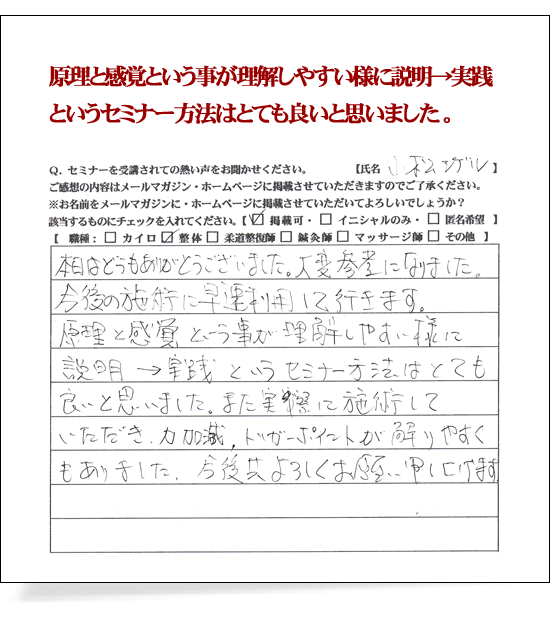 原理と感覚という事が理解しやすい様に説明→実践
というセミナー方法はとても良いと思いました。
Q．セミナーを受講されての熱い声をお聞かせください。 【氏名 小松 】
ご感想の内容はメールマガジン・ホームページに掲載させていただきますのでご了承ください。
※お名前をメールマガジンに・ホームページに掲載させていただいてよろしいでしょうか？
該当するものにチェックを入れてください。【☑ 掲載可・□ イニシャルのみ・□ 匿名希望 】
【 職種：□ カイロ ☑ 整体 □ 柔道整復師 □ 鍼灸師 □ マッサージ師 □ その他 】
本日はどうもありがとうございました。大変参考になりました。
今後の施術に早速利用して行きます。
原理と感覚という事が理解しやすい様に
説明→実践というセミナー方法はとても
良いと思いました。また実際に施術して
いただき、力加減，トリガーポイントが解りやすく
もありました、今後共よろしくお願い申し上げます